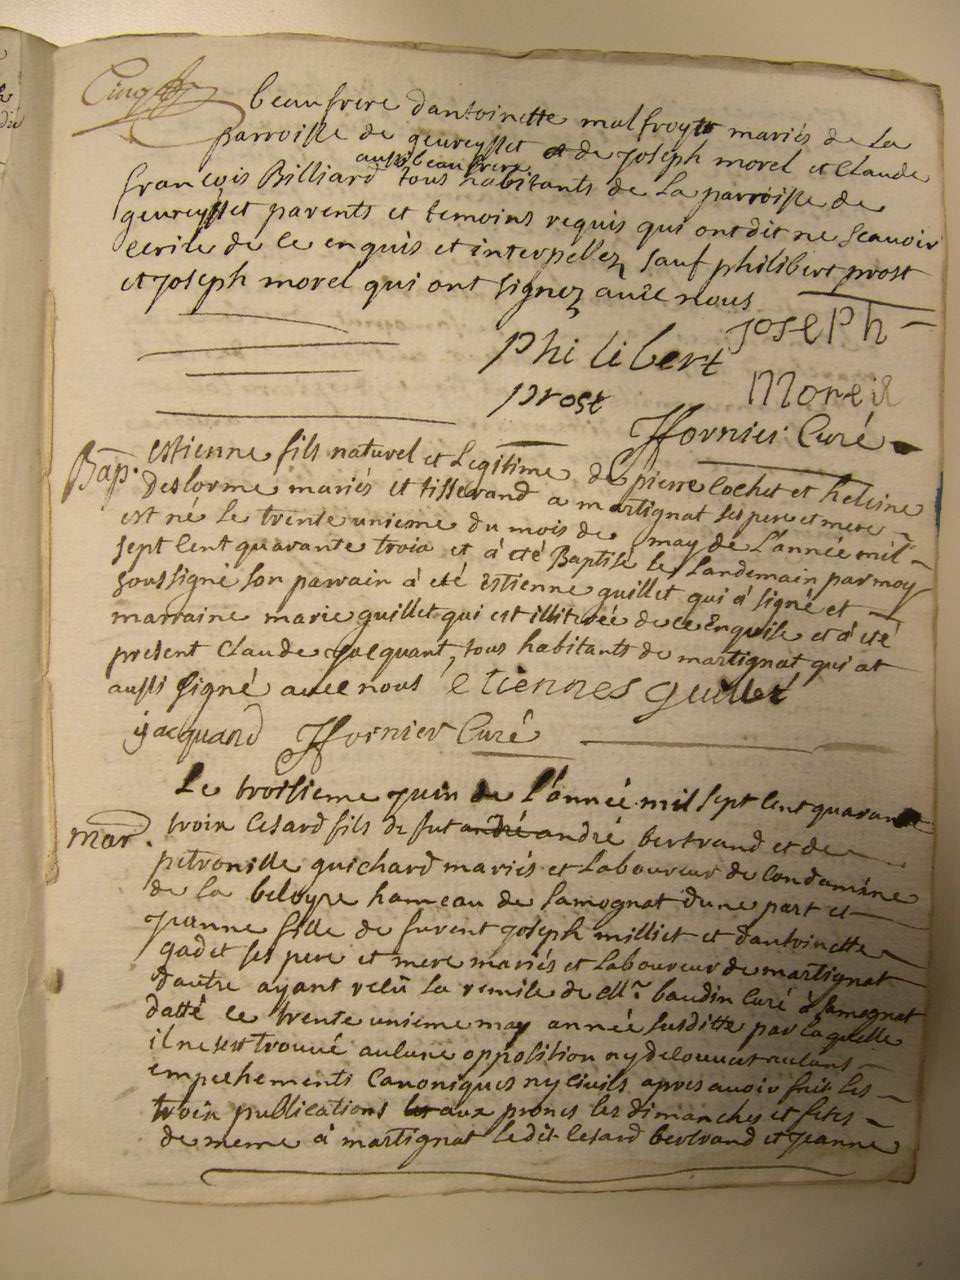 Cinq
beaufrere dantoinette malfroyt mariés de La
parroisse de geureysset et de Joseph morel et Claude
aussi beaufrere
françois Billiard tous habitants de La parroisse de
geureysset parents et temoins requis qui ont dit ne Scavoir
ecrire de ce enquis et interpellez Sauf philibert prost
et Joseph morel qui ont Signez avec nous
Joseph
Philibert
Moreil
prost
ffornier Curé
Bap. estienne fils naturel et Legitime de pierre Cochet et heleine
deslorme mariés et tisserand a martignat Ses pere et mere
est né Le trente unieme du mois de may de L'année mil
Sept Cent quarante trois et à été Baptisé Le Landemain par moy
Soussigné Son parrain à été estienne guillet qui à Signé et
marraine marie guillet qui est illiterée de ce Enquise et à eté
present Claude Jacquant, tous habitants de martignat qui at
aussi Signé avec nous etiennes guillet
ijacquand ffornier Curé
Le troisieme Juin de L'année mil Sept Cent quarante
Mar. trois Cesard fils de fut andré andré bertrand et de
petronille guichard mariés et Laboureur de Condamine
de La beloyre hameau de Samognat dune part et
Jeanne fille de furent Joseph milliet et dantoinette
gadet Ses pere et mere mariés et Laboureur de martignat
dautre ayant reçû La remise de Mr. baudin Curé à Samognat
datté Ce trente unieme may année Susditte par Laquelle
il ne sest trouvé aucune opposition ny decouvert aucuns
empechements Canoniques ny Civils apres avoir fait Les
trois publications aux prones Les dimanches et fetes
de meme à martignat Ledit Cesard bertrand et Jeanne